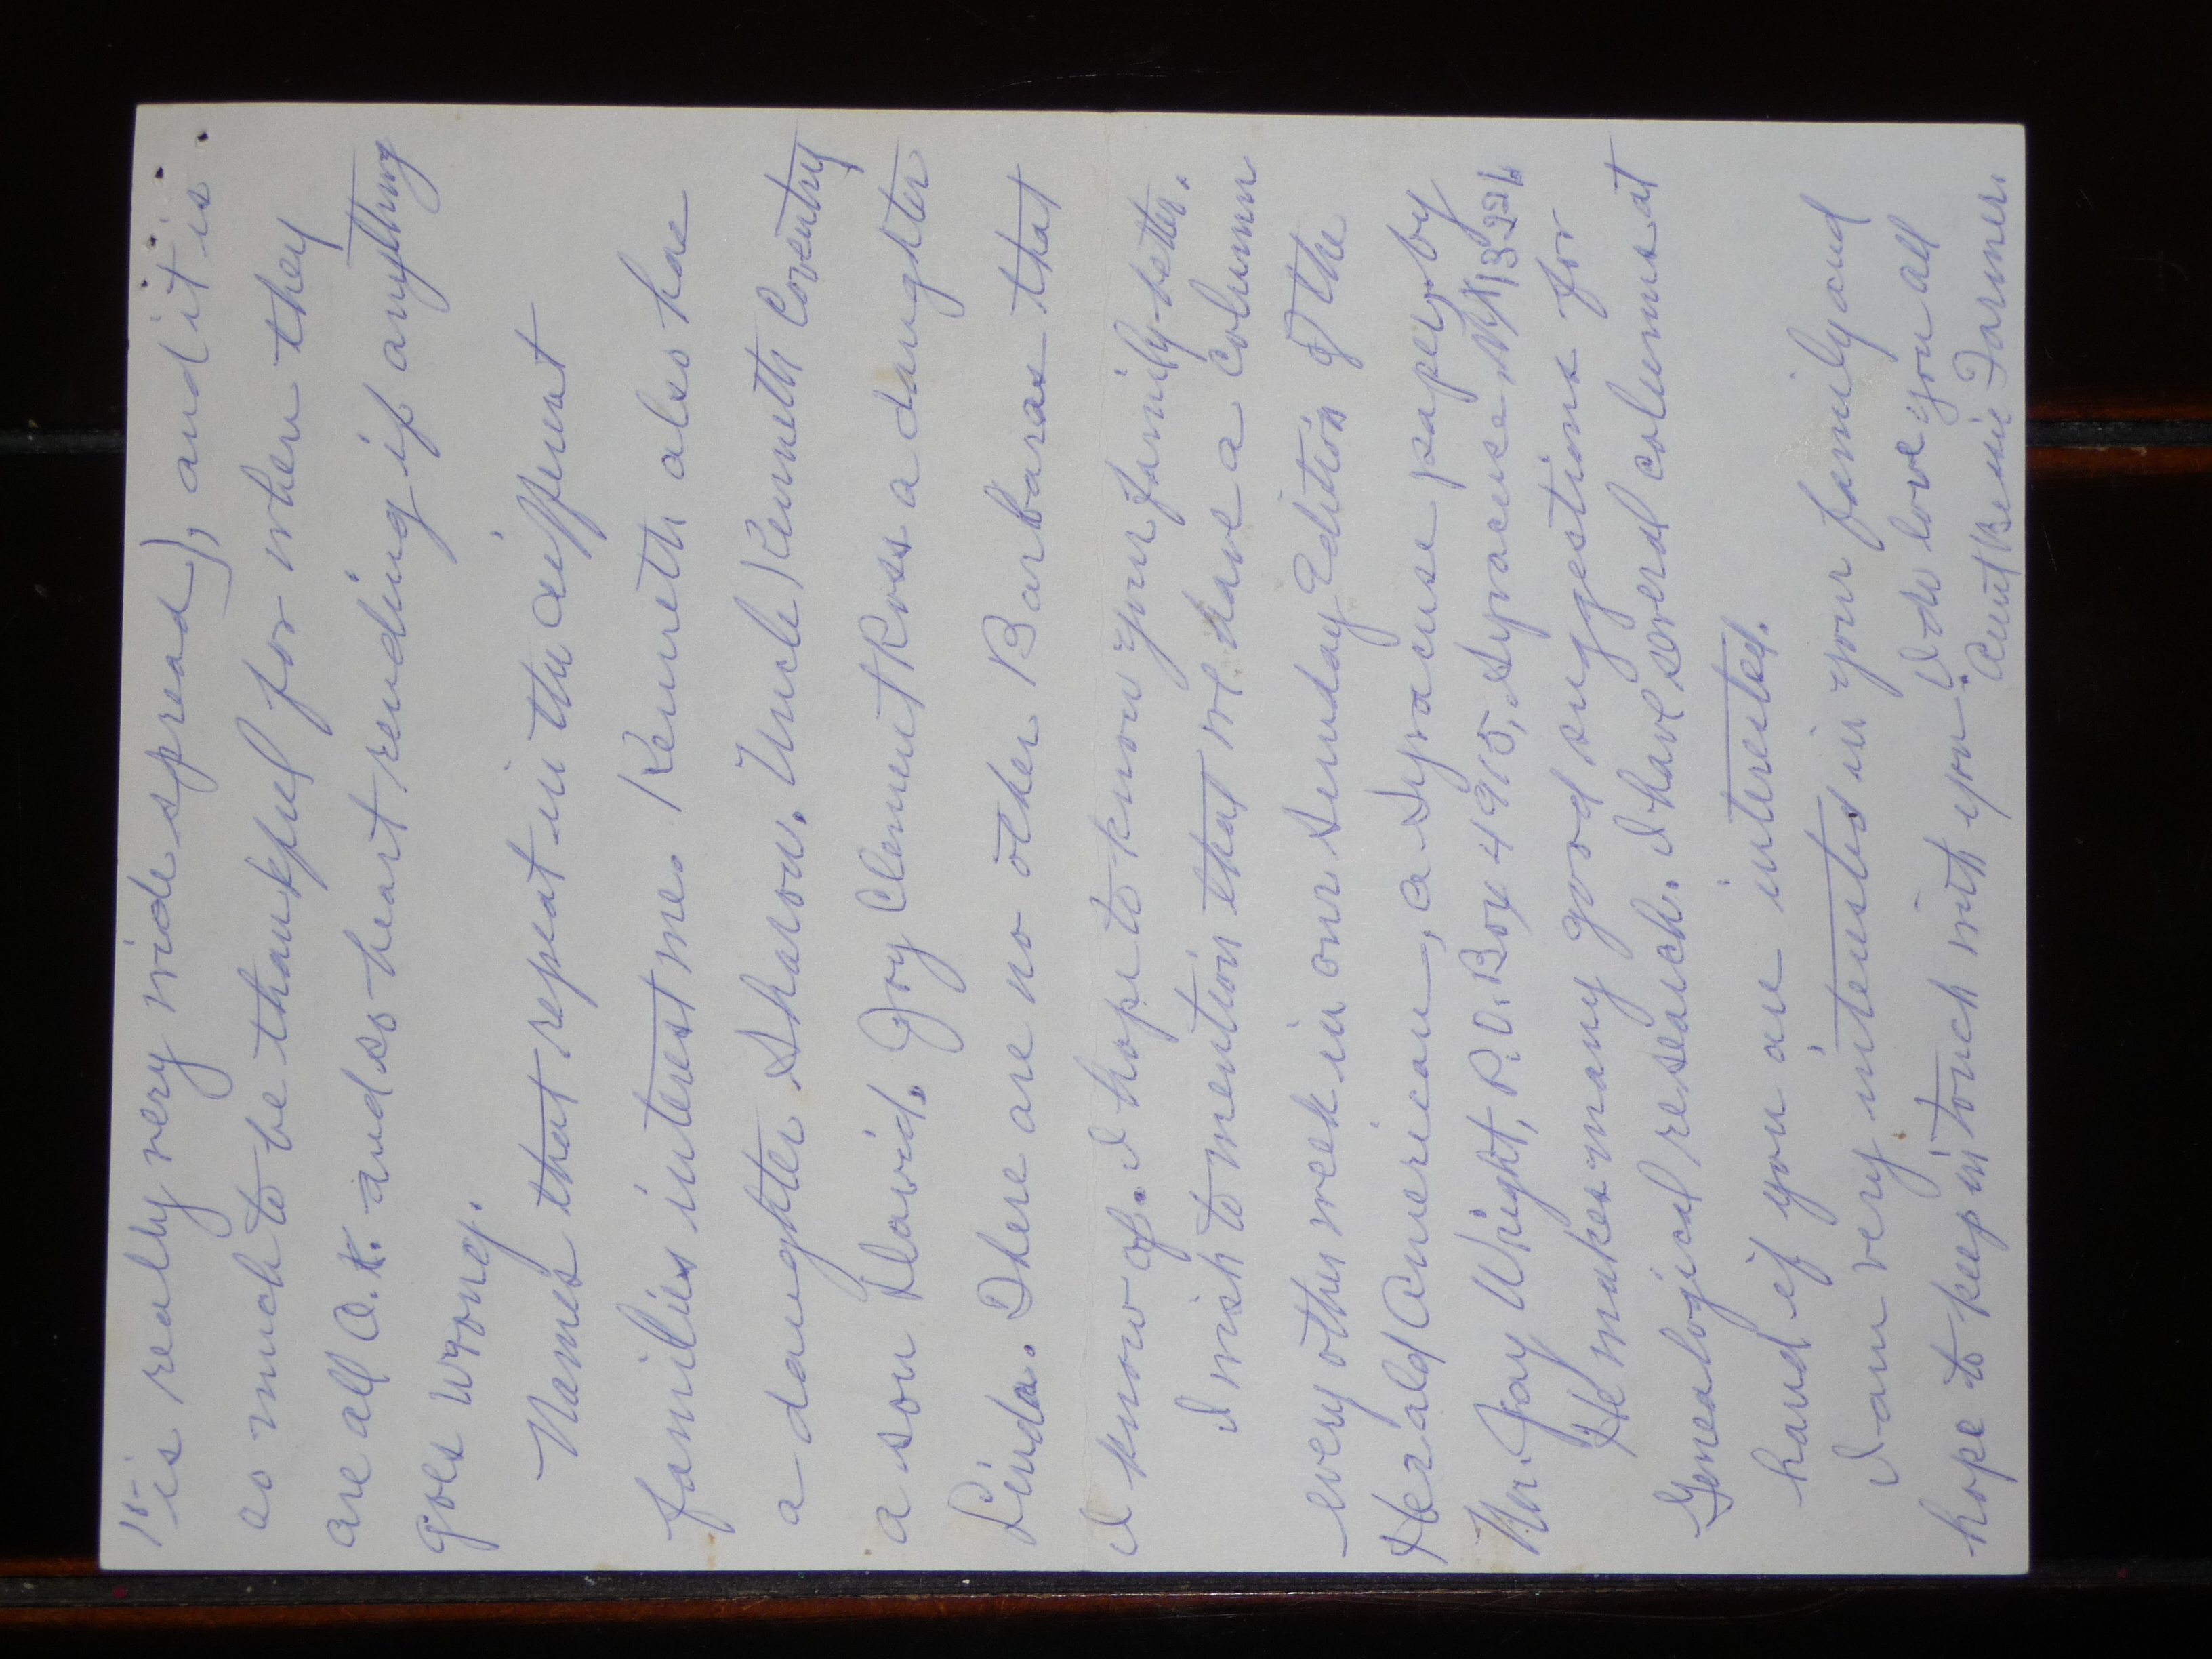 is really very wide spread), and it is
so much to be thankful for when they
are all O.K. and so heart rending if anything
goes wrong.
Names that repeat in the different
families interest me. Kenneth also has
a daughter Sharon. Uncle Kenneth Coventry
a son David. Joy Clement Ross a daughter
Linda. There are no other Barbaras that
I know of. I hope to know your family better.
I wish to mention that we have a column
every other week in our Sunday Edition of the
Herald American, a Syracuse paper, by
Mr. Jay Wright, P.O. Box 4915, Syracuse NY 13221.
He makes many good suggestions for
Genealogical research. I have several columns at
hand if you are interested.
I am very interested in your family and
hope to keep in touch with you. I do love you all
Aunt Bernie Farmer.